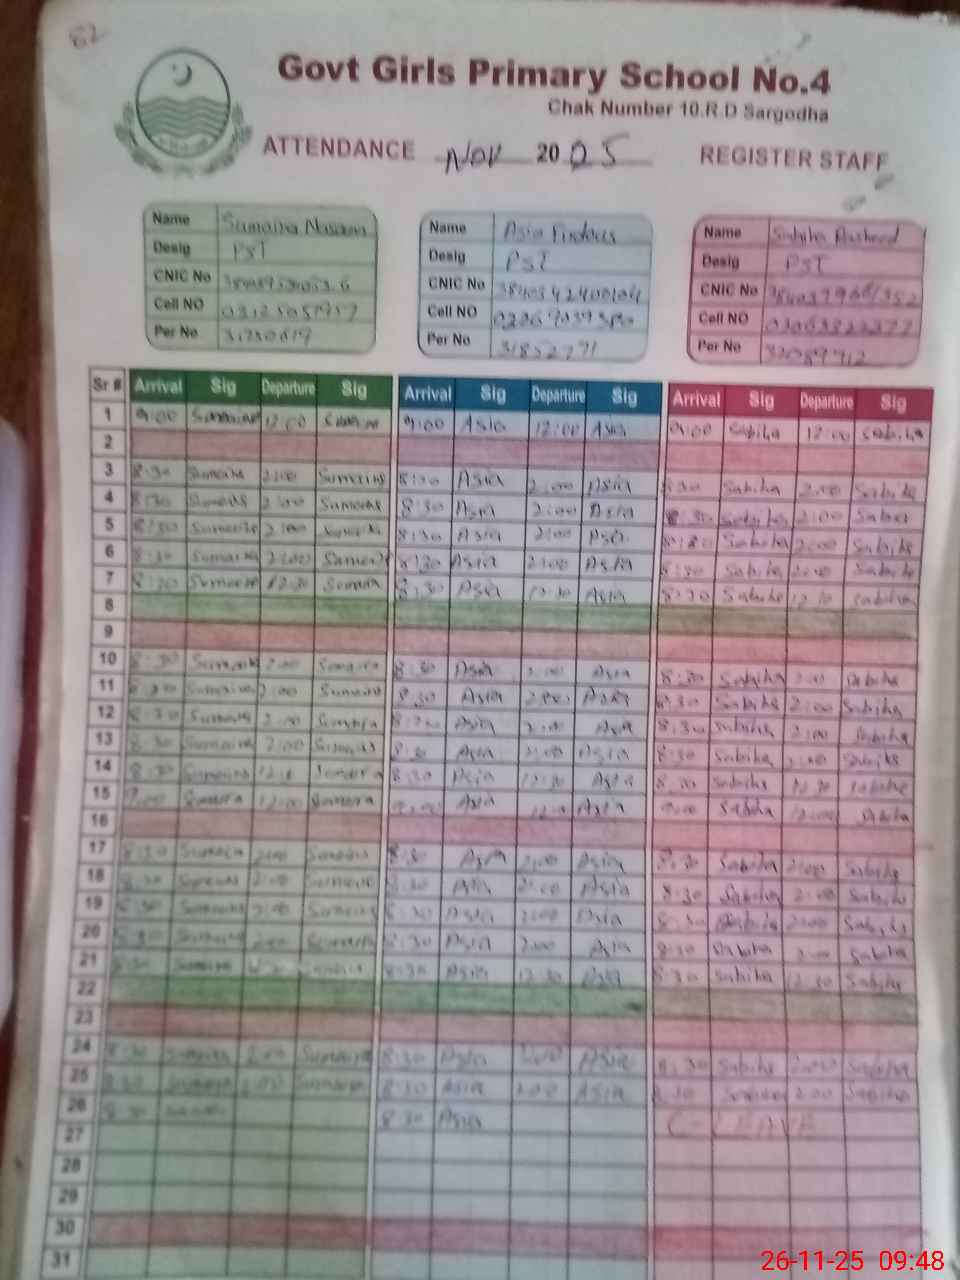 82
Govt Girls Primary School No.4
Chak Number 10.R.D Sargodha
ATTENDANCE Nov 2025 REGISTER STAFF
Name Sumaira Name Asia Firdous Name Sabiha Rasheed
Desig PST Desig PST Desig PST
CNIC No CNIC No CNIC No
Cell NO Cell NO Cell NO
Per No Per No 31852771 Per No
Sr # Arrival Sig Departure Sig Arrival Sig Departure Sig Arrival Sig Departure Sig
1 9:00 Sumaira 12:00 Sumaira 9:00 Asia 12:00 Asia 9:00 Sabiha 12:00 Sabiha
2
3 8:30 Sumaira 2:00 Sumaira 8:30 Asia 2:00 Asia 8:30 Sabiha 2:00 Sabiha
4 8:30 Sumaira 2:00 Sumaira 8:30 Asia 2:00 Asia 8:30 Sabiha 2:00 Sabiha
5 8:30 Sumaira 2:00 Sumaira 8:30 Asia 2:00 8:30 Sabiha 2:00 Sabiha
6 8:30 Sumaira 2:00 Sumaira 8:30 Asia 2:00 Asia 8:30 Sabiha 2:00 Sabiha
7 8:30 Sumaira 12:30 Sumaira 8:30 Asia 12:30 Asia 8:30 Sabiha 12:30 Sabiha
8
9
10 8:30 Sumaira 2:00 Sumaira 8:30 Asia 2:00 Asia 8:30 Sabiha 2:00 Sabiha
11 8:30 Sumaira 2:00 Sumaira 8:30 Asia 2:00 Asia 8:30 Sabiha 2:00 Sabiha
12 8:30 Sumaira 2:00 Sumaira 8:30 Asia 2:00 Asia 8:30 Sabiha 2:00 Sabiha
13 8:30 Sumaira 2:00 Sumaira 8:30 Asia 2:00 Asia 8:30 Sabiha 2:00 Sabiha
14 8:30 Sumaira Sumaira 8:30 Asia 12:30 Asia 8:30 Sabiha 12:30 Sabiha
15 9:00 Sumaira 12:00 Sumaira 9:00 Asia 12:00 Asia 9:00 Sabiha 12:00 Sabiha
16
17 8:30 Sumaira 2:00 Sumaira 8:30 Asia 2:00 Asia 8:30 Sabiha 2:00 Sabiha
18 8:30 Sumaira 2:00 Sumaira 8:30 Asia 2:00 Asia 8:30 Sabiha 2:00 Sabiha
19 8:30 Sumaira 2:00 Sumaira 8:30 Asia 2:00 Asia 8:30 Sabiha 2:00 Sabiha
20 8:30 Sumaira 2:00 Sumaira 8:30 Asia 2:00 Asia 8:30 Sabiha 2:00 Sabiha
21 8:30 Sumaira Sumaira 8:30 Asia 12:30 Asia 8:30 Sabiha 12:30 Sabiha
22
23
24 8:30 Sumaira 2:00 Sumaira 8:30 Asia 2:00 Asia 8:30 Sabiha 2:00 Sabiha
25 8:30 Sumaira 2:00 Sumaira 8:30 Asia 2:00 Asia 8:30 Sabiha 2:00 Sabiha
26 8:30 8:30 Asia C-LEAVE
27
28
29
30
31
26-11-25 09:48